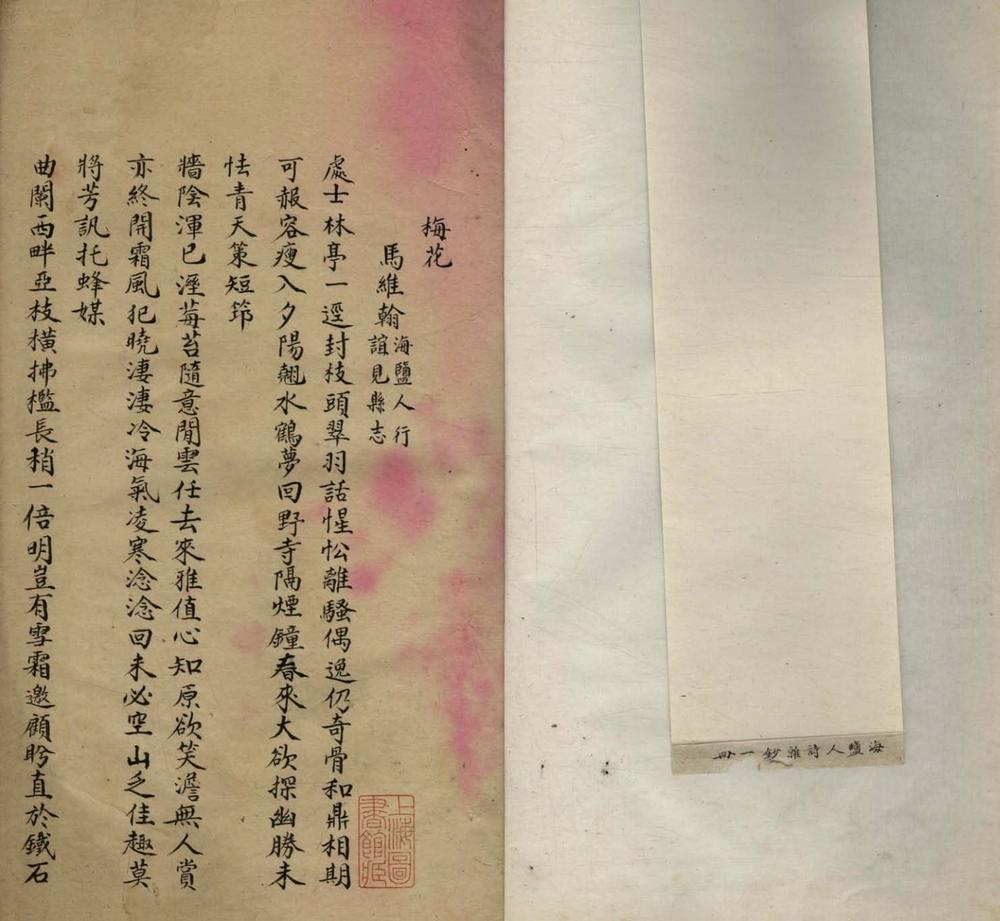 海鹽人詩雜鈔一冊
梅花
馬維翰
海鹽人行
誼見縣志
處士林亭一逕封枝頭翠羽話惺忪離騷偶逸仍奇骨和鼎相期
可赧容瘦入夕陽翹水鶴夢回野寺隔煙鐘春來大欲探幽勝未
怯青天策短筇
牆陰渾已溼莓苔隨意閒雲任去來雅值心知原欲笑澹無人賞
亦終開霜風犯曉淒淒冷海氣凌寒淰淰回未必空山乏佳趣莫
將芳訊托蜂媒
曲闌西畔亞枝橫拂檻長稍一倍明豈有雪霜邀顧盻直於鐵石
上海圖
書館藏